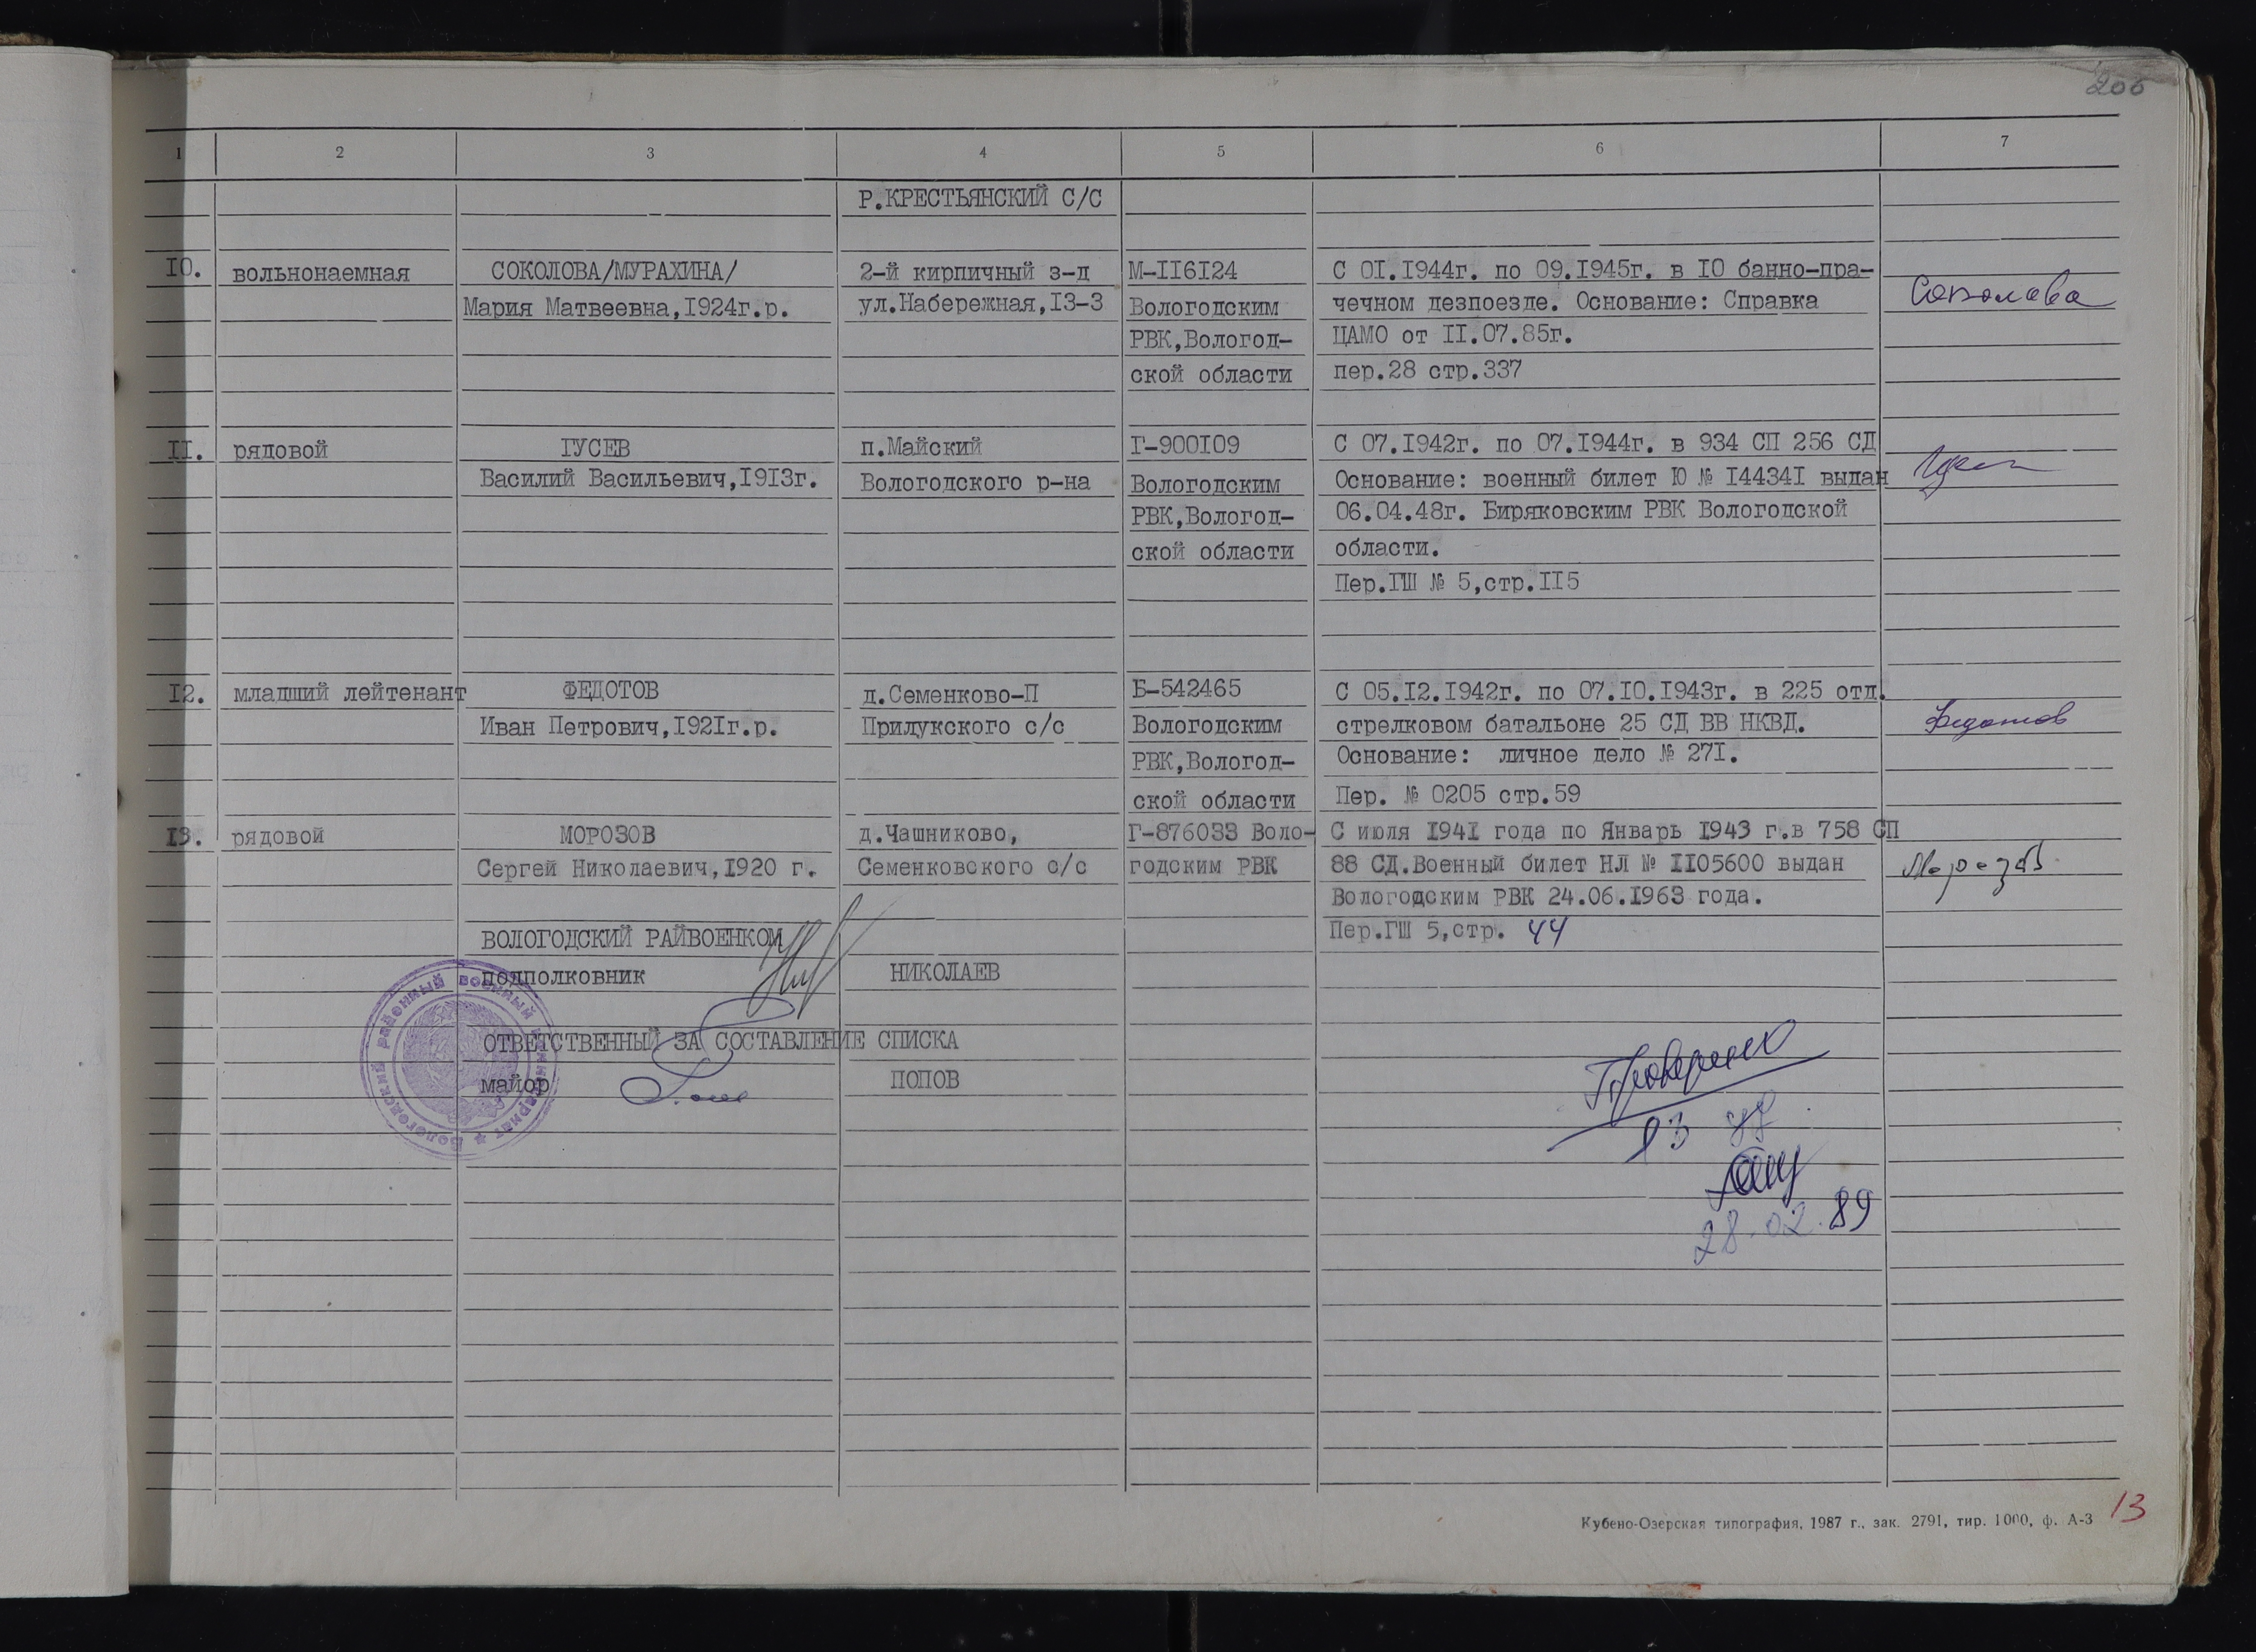 206
1 2 3 4 5 6 7
Р.КРЕСТЬЯНСКИЙ С/С
10. вольнонаемная СОКОЛОВА/МУРАХИНА/ 2-й кирпичный з-д М-116124 С 01.1944г. по 09.1945г. в 10 банно-пра-
Мария Матвеевна,1924г.р. ул.Набережная,13-3 Вологодским чечном дезпоезде. Основание: Справка Соколова
РВК,Вологод- ЦАМО от 11.07.85г.
ской области пер.28 стр.337
11. рядовой ГУСЕВ п.Майский Г-900109 С 07.1942г. по 07.1944г. в 934 СП 256 СД
Василий Васильевич,1913г. Вологодского р-на Вологодским Основание: военный билет Ю № 144341 выдан
РВК,Вологод- 06.04.48г. Биряковским РВК Вологодской
ской области области.
Пер.ГШ № 5,стр.115
12. младший лейтенант ФЕДОТОВ д.Семенково-П Б-542465 С 05.12.1942г. по 07.10.1943г. в 225 отд.
Иван Петрович,1921г.р. Прилукского с/с Вологодским стрелковом батальоне 25 СД ВВ НКВД. Федотов
РВК,Вологод- Основание: личное дело № 271.
ской области Пер. № 0205 стр.59
13. рядовой МОРОЗОВ д.Чашниково, Г-876033 Воло- С июля 1941 года по Январь 1943 г.в 758 СП
Сергей Николаевич,1920 г. Семенковского с/с годским РВК 88 СД.Военный билет НЛ № 1105600 выдан Морозов
Вологодским РВК 24.06.1963 года.
Пер.ГШ 5,стр. 44
ВОЛОГОДСКИЙ РАЙВОЕНКОМ
подполковник НИКОЛАЕВ
ОТВЕТСТВЕННЫЙ ЗА СОСТАВЛЕНИЕ СПИСКА
майор ПОПОВ
Вологодский районный военный комиссариат
Проверено
28.02.89
Кубено-Озерская типография, 1987 г., зак. 2791, тир. 1000, ф. А-3
13